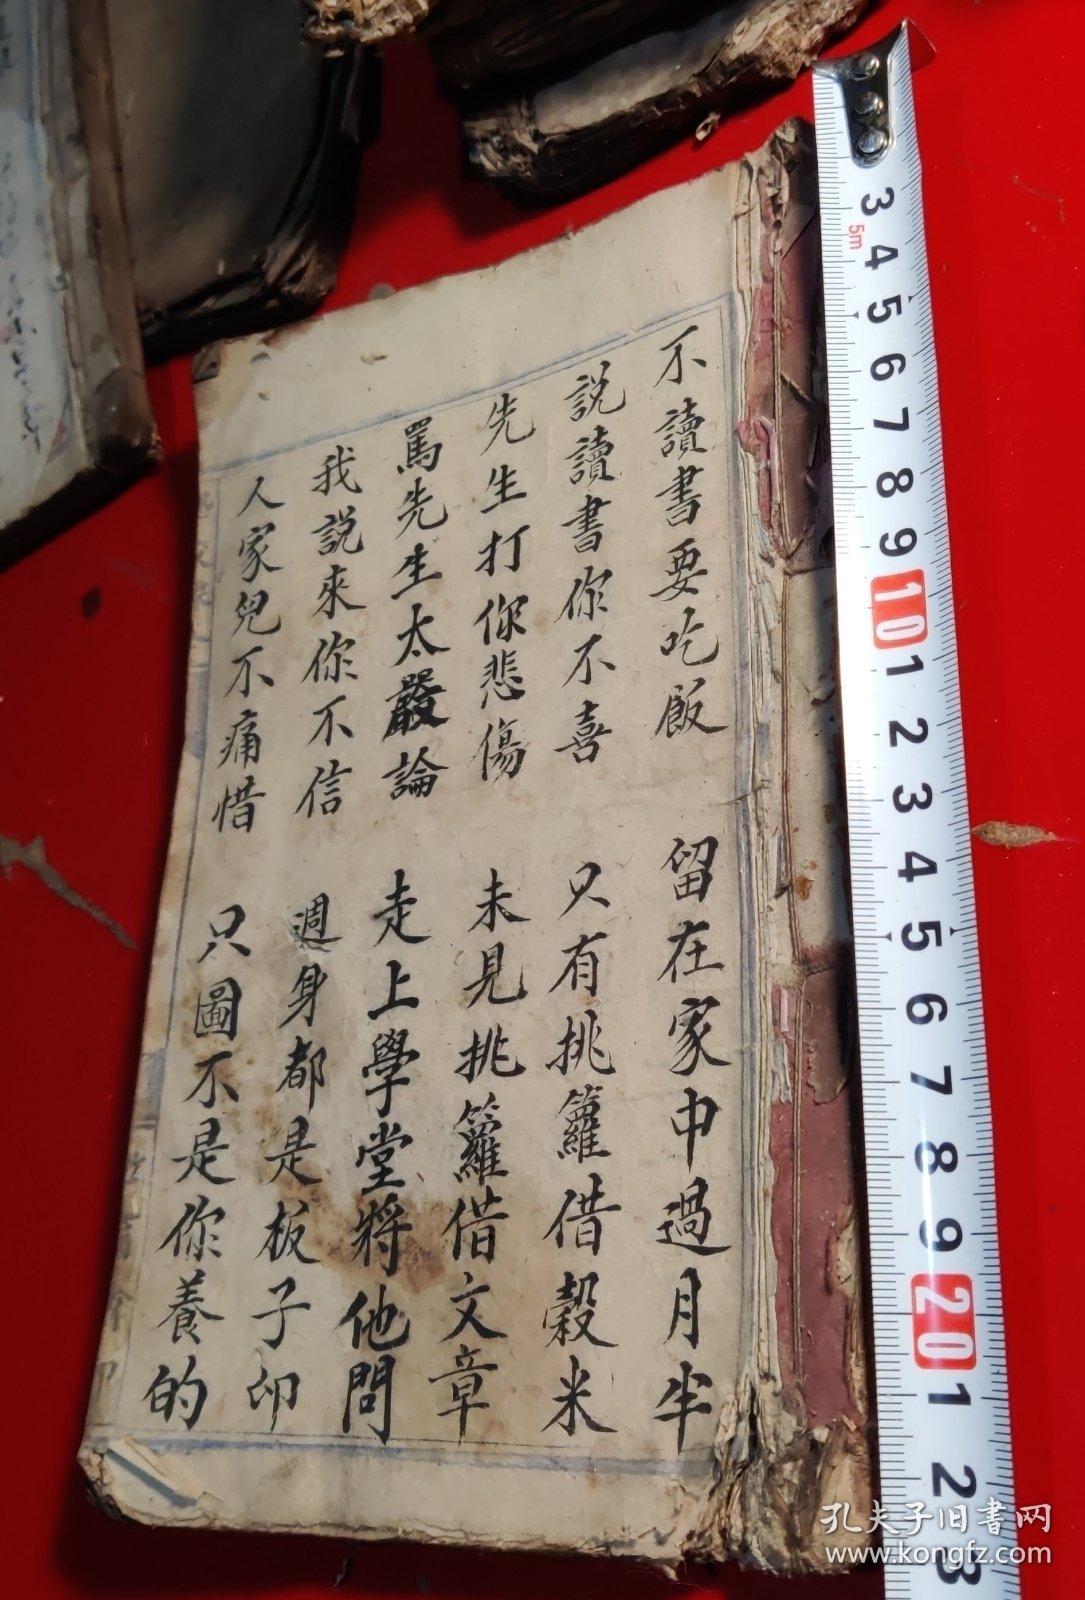 不讀書要吃飯　留在家中過月半
説讀書你不喜　只有挑籮借穀米
先生打你悲傷　未見挑籮借文章
罵先生太嚴論　走上學堂將他問
我説來你不信　週身都是板子印
人家兒不痛惜　只圖不是你養的
3
5m
4
5
6
7
8
9
10
1
2
3
4
5
6
7
8
9
20
1
2
3
孔夫子旧书网
www.kongfz.com